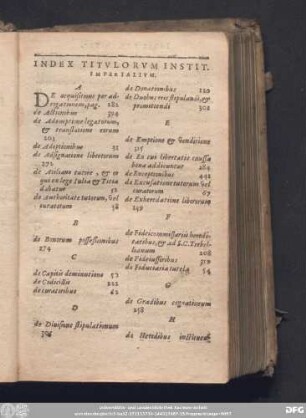 INDEX TITVLORVM INSTIT.
IMPERIALIVM.
A
DE acquisitione per ad-
rogationem, pag. 282
de Actionibus 394
de Ademptione legatorum,
et translatione eorum
203
de Adoptionibus 31
de Adsignatione libertorum
271
de Atiliano tutore, & eo
qui ex lege Iulia & Titia
dabatur 56
de Authoritate tutorum, vel
curatorum 58
B
de Bonorum possessionibus
274
C
de Capitis deminutione 52
de Codicillis 222
de curatoribus 62
D
de Divisione stipulationum
de Donationibus 120
de Duobus reis stipulandi, &
promittendi 302
E
de Emptione & venditione
de Eo cui libertatis caussa
bona addicuntur 284
de Exceptionibus 441
de Excusatione tutorum, vel
curatorum 67
de Exheredatione liberorum
149
F
de Fideicommissariis heredi-
tatibus, & ad S.C. Trebel-
lianum 208
de Fideiussoribus
de Fiduciaria tutela 54
G
de Gradibus cognationum
258
H
de Heredibus instituendis